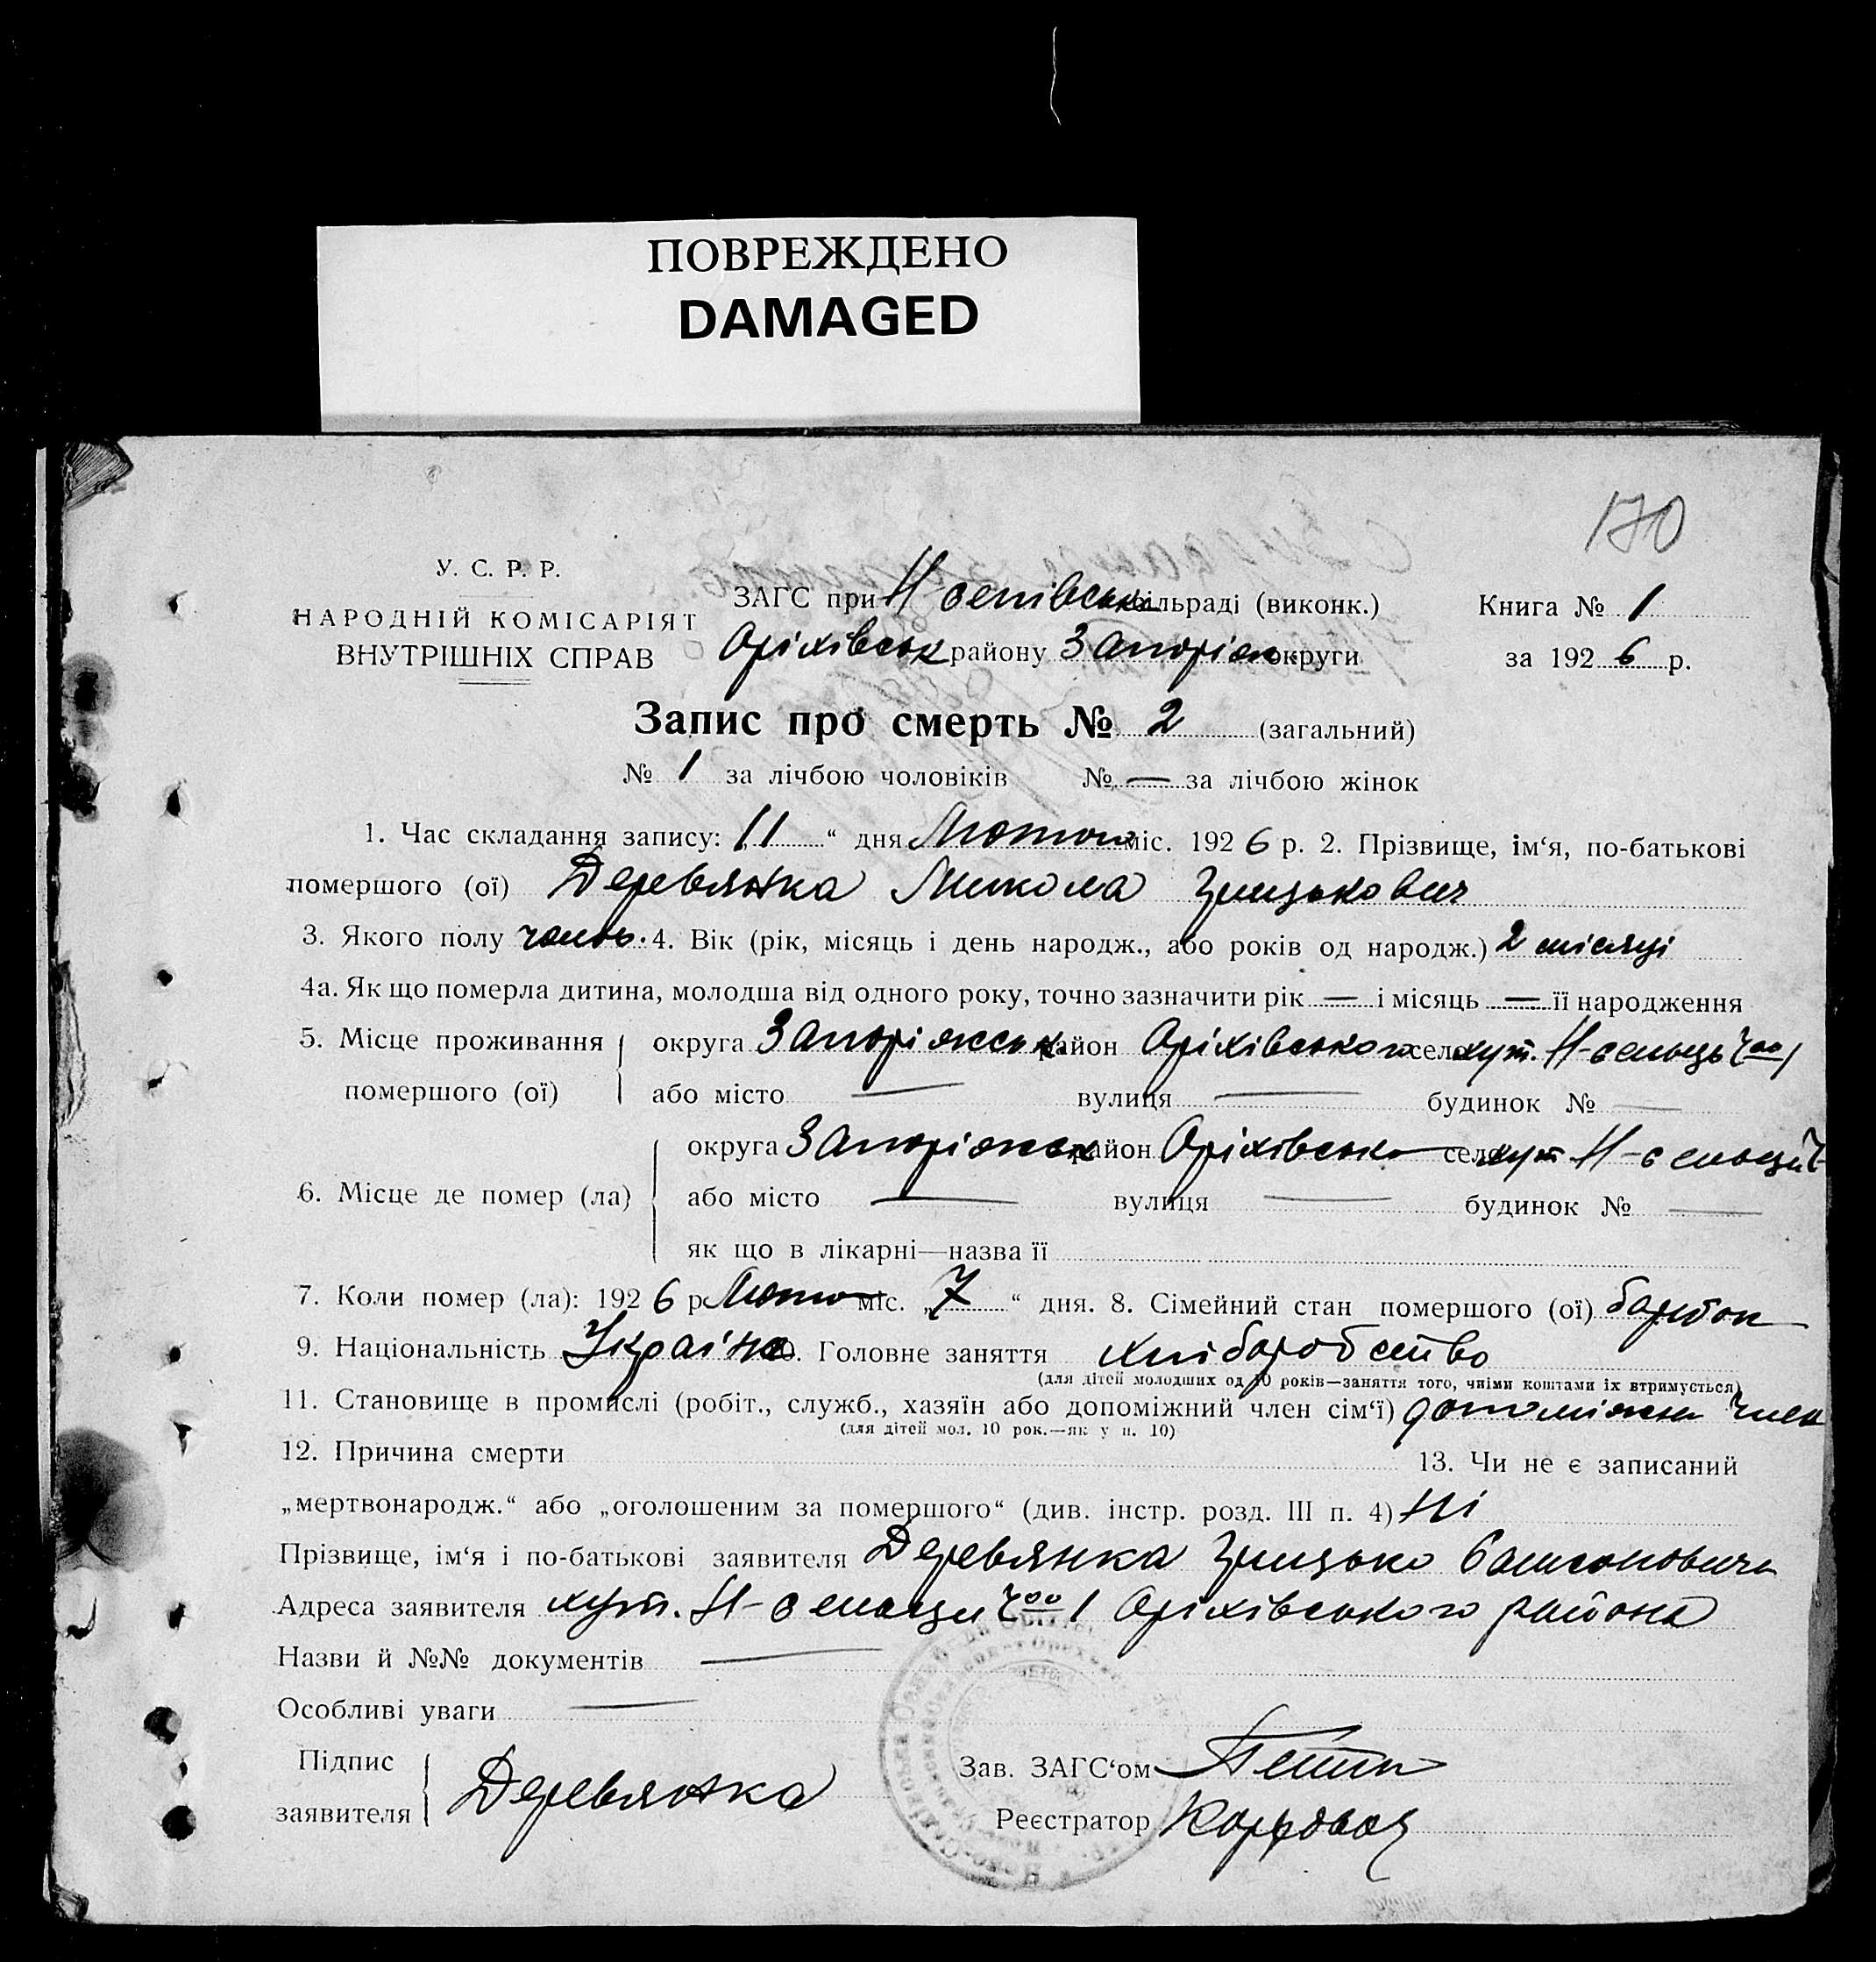 ПОВРЕЖДЕНО
DAMAGED
170
У. С. Р. Р.
НАРОДНІЙ КОМІСАРІЯТ
ВНУТРІШНІХ СПРАВ
ЗАГС при сільраді (виконк.)
Оріхівськ району Запоріж округи
Книга № 1
за 1926 р.
Запис про смерть № 2 (загальний)
№ 1 за лічбою чоловіків № — за лічбою жінок
1. Час складання запису: „11“ дня Лютого міс. 1926 р. 2. Прізвище, ім‘я, по-батькові
помершого (ої) Деревянка Микола Грицькович
3. Якого полу чолов. 4. Вік (рік, місяць і день народж., або років од народж.) 2 місяці
4а. Як що померла дитина, молодша від одного року, точно зазначити рік — і місяць — її народження
5. Місце проживання помершого (ої) округа Запоріжськ район Оріхівського село хут.
або місто — вулиця — будинок № —
6. Місце де помер (ла) округа Запоріжськ район Оріхівсько село хут
або місто — вулиця — будинок № —
як що в лікарні—назва її
7. Коли помер (ла): 1926 р. Лютого міс. „7“ дня. 8. Сімейний стан помершого (ої)
9. Національність Україн 10. Головне заняття хліборобство
(для дітей молодших од 10 років—заняття того, чиїми коштами їх втримується)
11. Становище в промислі (робіт., служб., хазяїн або допоміжний член сім‘ї) допоміжни член
(для дітей мол. 10 рок.—як у п. 10)
12. Причина смерти 13. Чи не є записаний
„мертвонародж.“ або „оголошеним за помершого“ (див. інстр. розд. III п. 4) Ні
Прізвище, ім‘я і по-батькові заявителя Деревянка Грицько Самсонович
Адреса заявителя хут. Оріхівського району
Назви й №№ документів —
Особливі уваги —
Підпис заявителя Деревянка
Зав. ЗАГС‘ом
Реєстратор